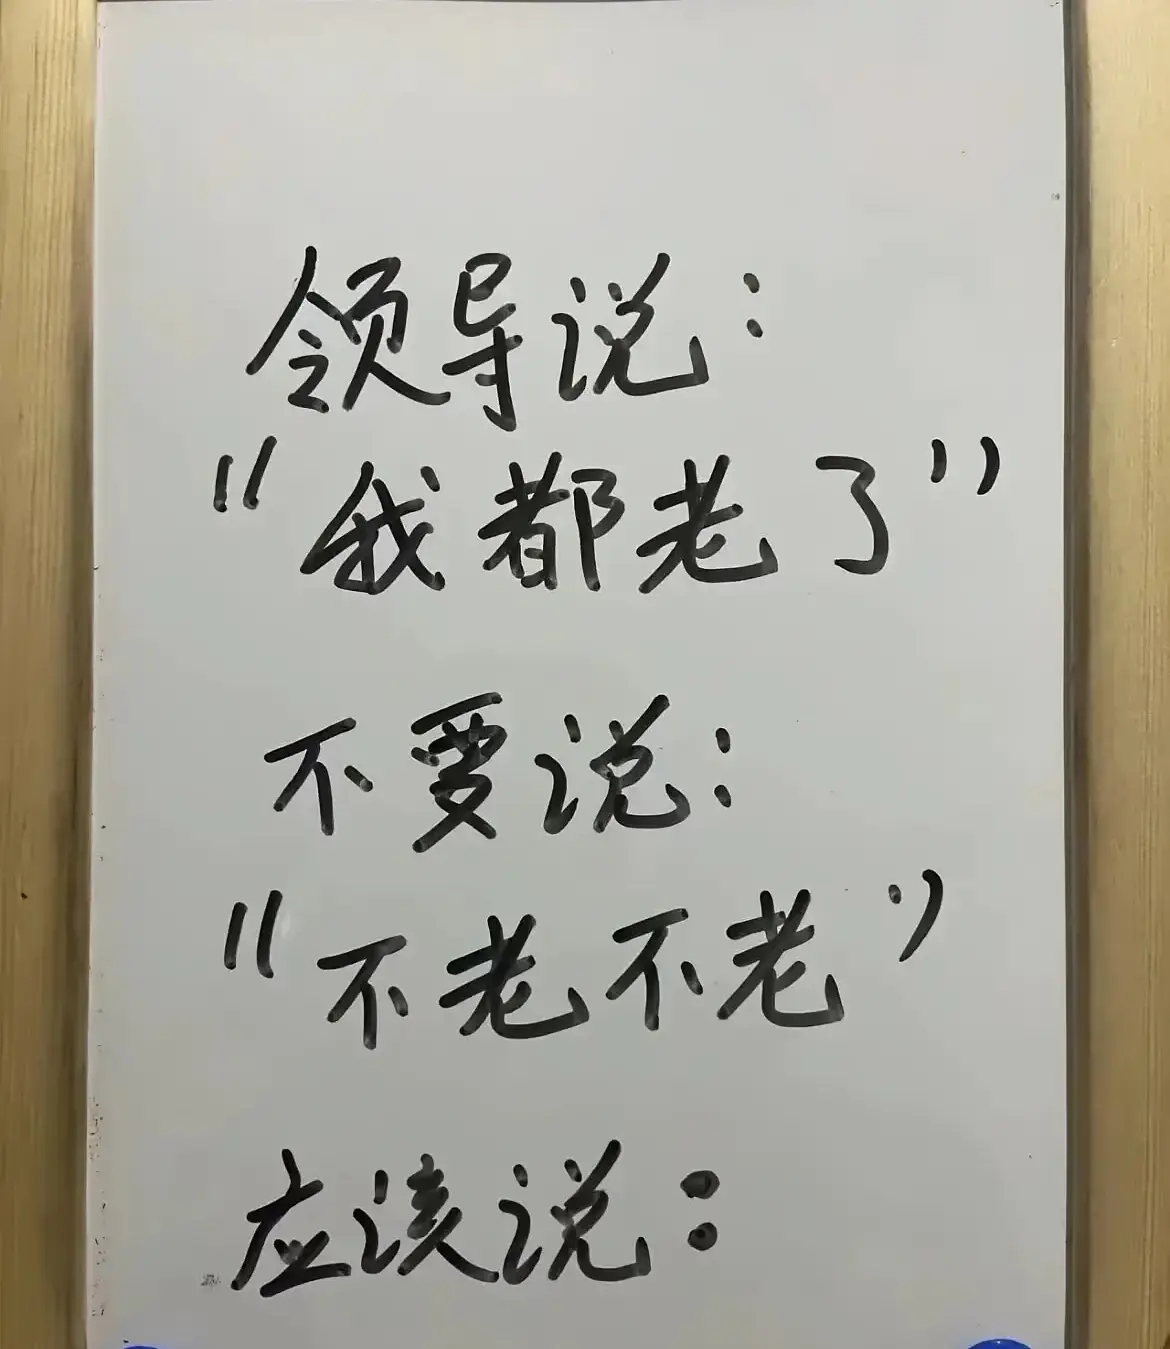 领导说：
“我都老了”
不要说：
“不老不老”
应该说：